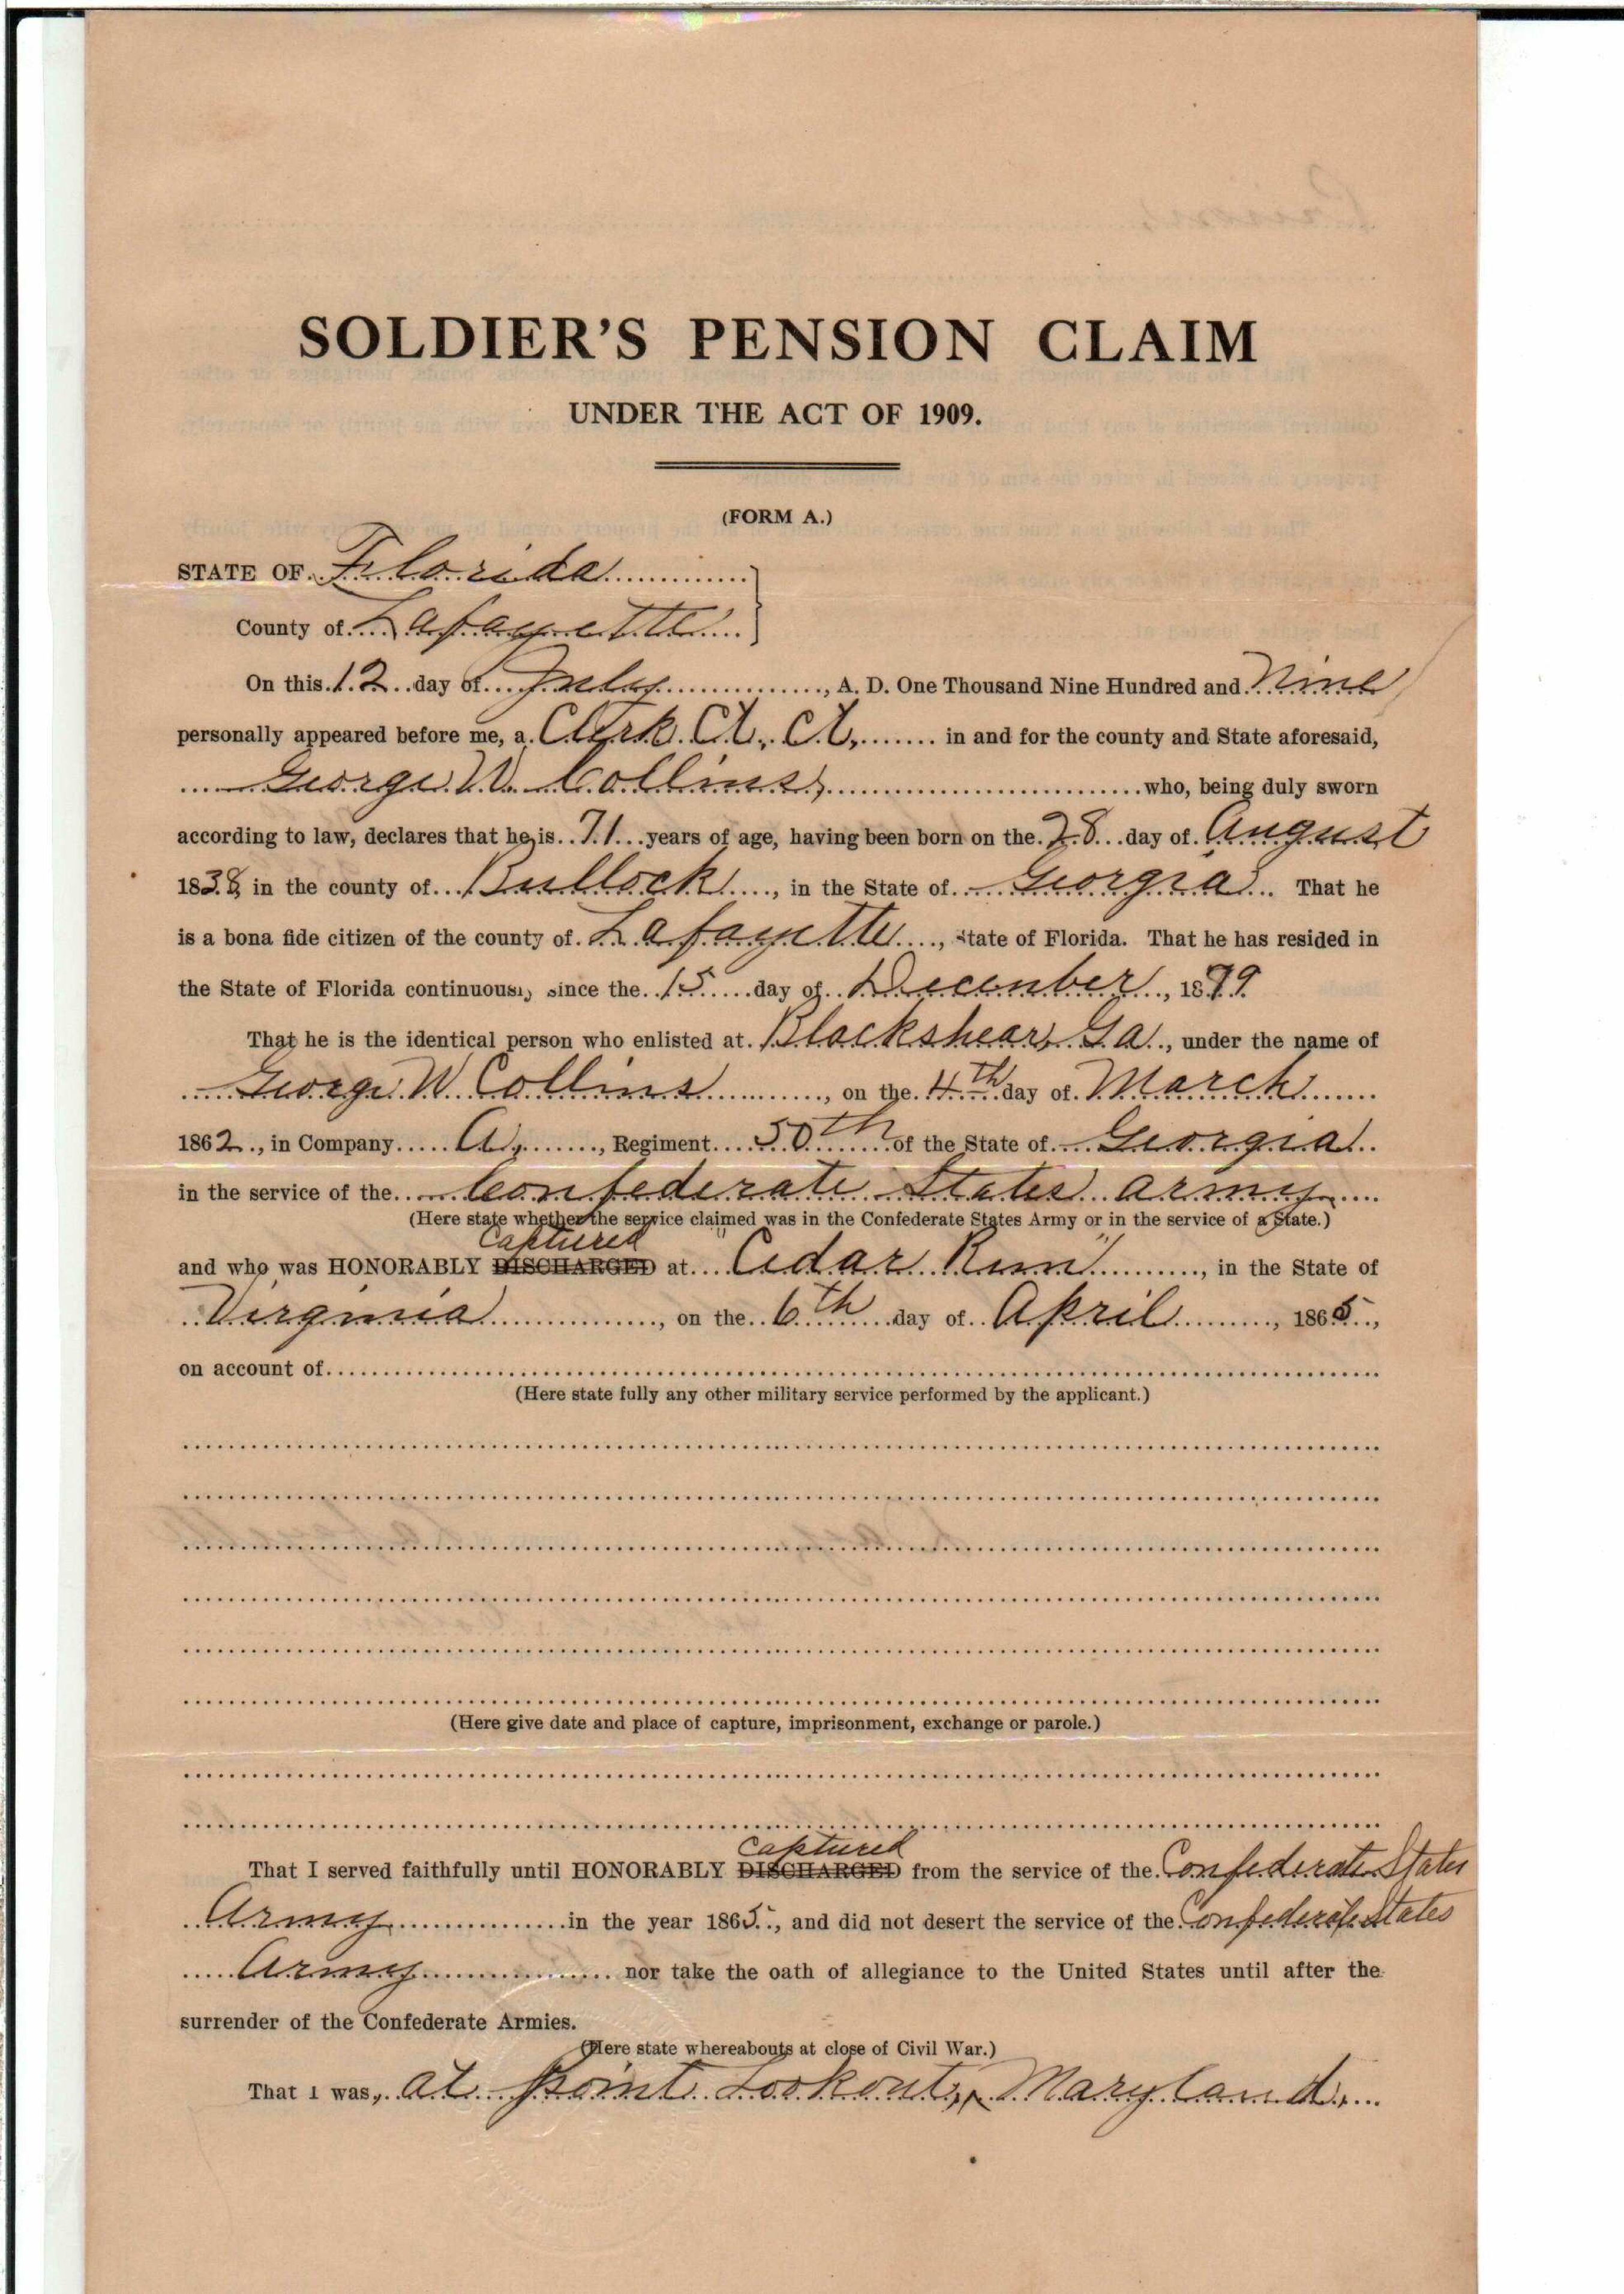 SOLDIER'S PENSION CLAIM
UNDER THE ACT OF 1909.
(FORM A.)
STATE OF Florida
County of Lafayette
On this 12 day of July, A. D. One Thousand Nine Hundred and Nine
personally appeared before me, a Clerk Ct. Ct, in and for the county and State aforesaid,
George W. Collins, who, being duly sworn
according to law, declares that he is 71 years of age, having been born on the 28 day of August
1838, in the county of Bullock, in the State of Georgia. That he
is a bona fide citizen of the county of Lafayette, State of Florida. That he has resided in
the State of Florida continuously since the 15 day of December, 1879
That he is the identical person who enlisted at Blackshear, Ga., under the name of
George W Collins, on the 4th day of March
1862, in Company A, Regiment 50th of the State of Georgia
in the service of the Confederate States Army
(Here state whether the service claimed was in the Confederate States Army or in the service of a State.)
captured
and who was HONORABLY DISCHARGED at "Cedar Run", in the State of
Virginia, on the 6th day of April, 1865,
on account of
(Here state fully any other military service performed by the applicant.)
(Here give date and place of capture, imprisonment, exchange or parole.)
captured
That I served faithfully until HONORABLY DISCHARGED from the service of the Confederate States
Army in the year 1865, and did not desert the service of the Confederate States
Army nor take the oath of allegiance to the United States until after the
surrender of the Confederate Armies.
(Here state whereabouts at close of Civil War.)
That I was, at Point Lookout, Maryland,